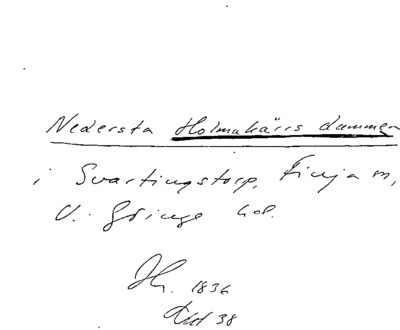 Nedersta Holmakärrs dammen
i Svartingstorp, Finja sn,
V. Göinge hd.
1836
38